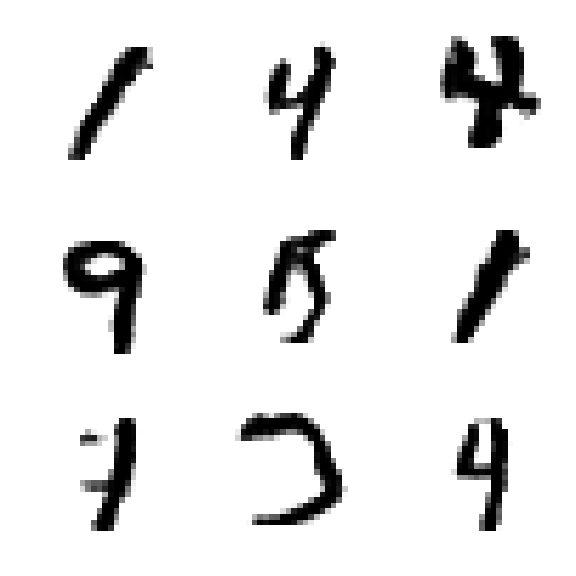 1 4 4
9 5 1
7 4